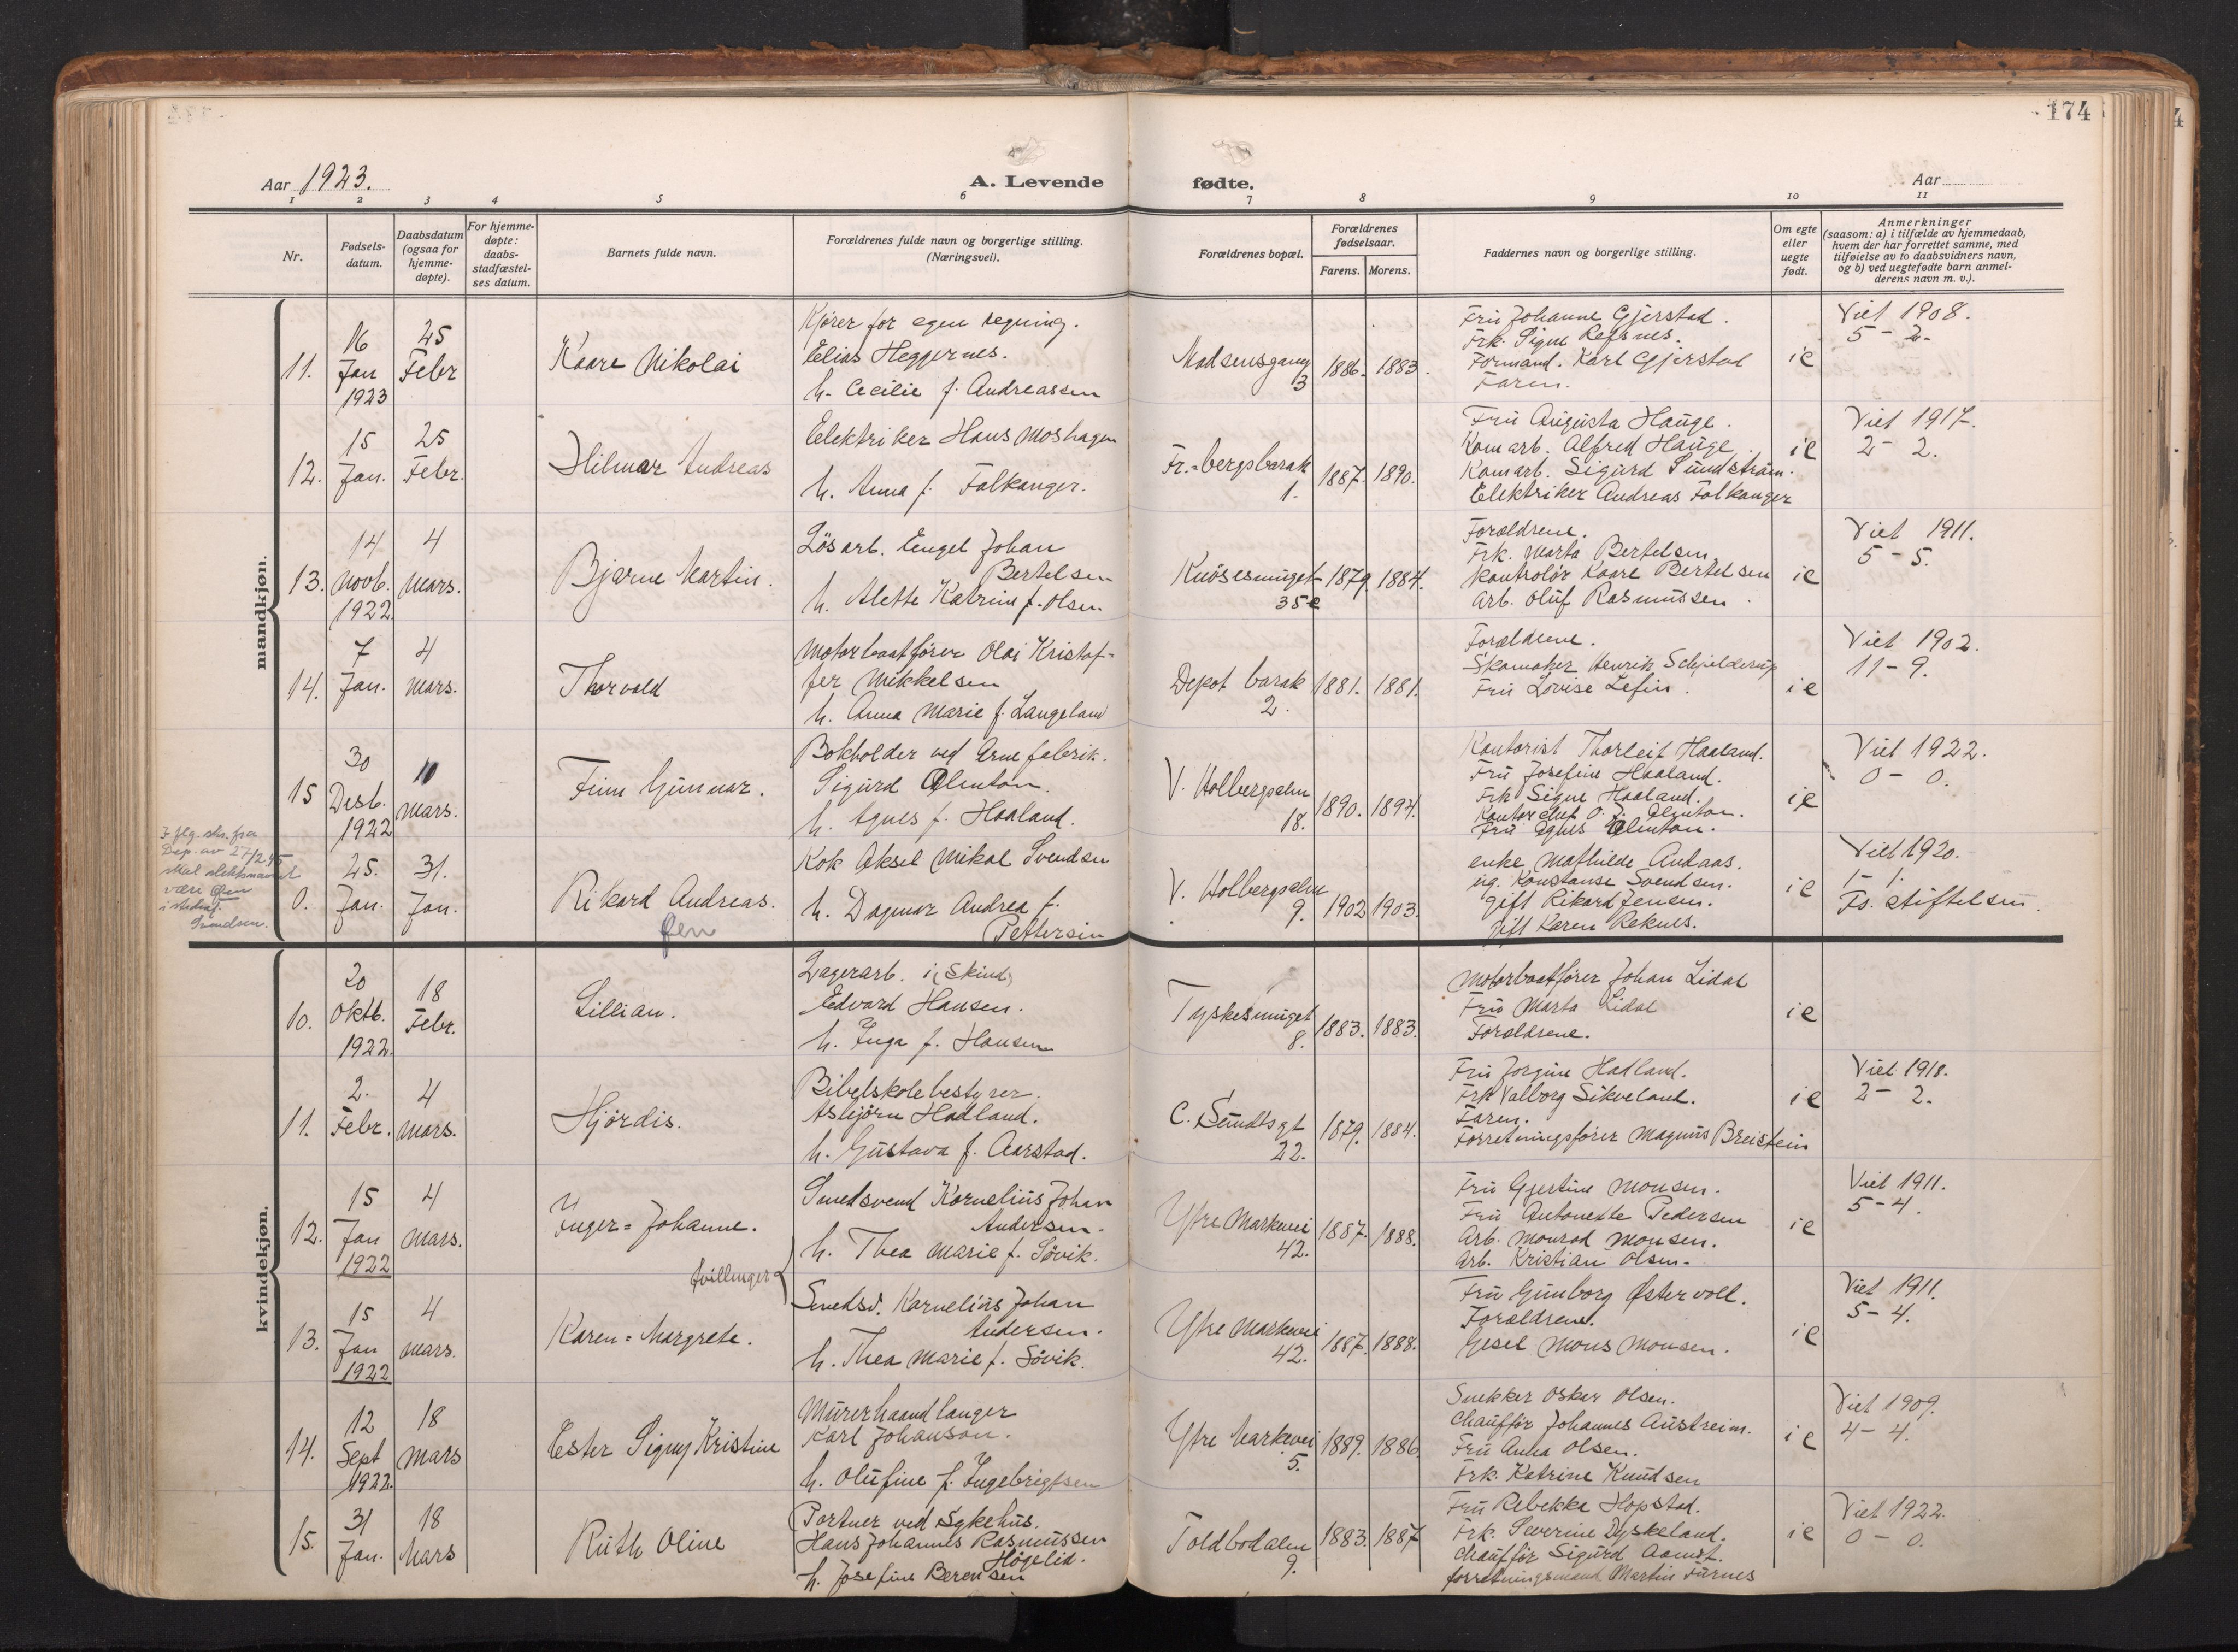 174
Aar 1923.
A. Levende fødte.
Aar
1 2 3 4 5 6 7 8 9 10 11
Nr.
Fødsels-
datum.
Daabsdatum
(ogsaa for
hjemme-
døpte).
For hjemme-
døpte:
daabs-
stadfæstel-
ses datum.
Barnets fulde navn.
Forældrenes fulde navn og borgerlige stilling.
(Næringsvei).
Forældrenes bopæl.
Forældrenes
fødselsaar.
Farens. Morens.
Faddernes navn og borgerlige stilling.
Om egte
eller
uegte
født.
Anmerkninger
(saasom: a) i tilfælde av hjemmedaab,
hvem der har forrettet samme, med
tilføielse av to daabsvidners navn,
og b) ved uegtefødte barn anmel-
derens navn m. v.).
mandkjøn.
11.
16
Jan
1923
25
Febr
Kaare Nikolai
Kjører for egen regning.
Elias Heggernes.
h. Cecilie f. Andreassen
Madsensgang
3
1886. 1883.
Fru Johanne Gjerstad.
Frk. Signe Refsnes.
Formand. Karl Gjerstad
Faren.
ie
Viet 1908.
5 - 2.
12.
15
Jan.
25
Febr.
Hilmar Andreas
Elektriker Hans Moshagen
h. Anna f. Falkanger.
Fr.=bergsbarak
1.
1887. 1890.
Fru Augusta Hauge.
Kom arb. Alfred Hauge
Kom arb. Sigurd Sundstrøm.
Elektriker Andreas Falkanger
ie
Viet 1917.
2 - 2.
13.
14
Novb.
1922
4
Mars.
Bjarne Martin.
Løsarb. Engel Johan
Bertelsen
h. Alette Katrine f. Olsen.
Knøsesmuget
35 e
1879. 1884.
Forældrene.
Frk. Marta Bertelsen
Kontrolør Kaare Bertelsen
Arb. Oluf Rasmussen.
ie
Viet 1911.
5 - 5.
14.
7
Jan.
4
Mars.
Thorvald
Motorbaatfører Olai Kristof-
fer Mikkelsen
h. Anna Marie f. Langeland
Depot barak
2.
1881. 1881.
Forældrene.
Skomaker Henrik Schjelderup
Fru Lovise Lefin.
ie
Viet 1902.
11 - 9.
15
30
Desb.
1922
10
Mars.
Finn Gunnar.
Bokholder ved Arne fabrik.
Sigurd Olmton.
h. Agnes f. Haaland.
V. Holbergsalm
18.
1890. 1894.
Kontorist Thorleif Haaland.
Fru Josefine Haaland.
Frk Signe Haaland.
Kontorchef O. J. Olmton.
Fru Agnes Olmton.
ie
Viet 1922.
0 - 0.
I flg. skr. fra
Dep. av 27/2 45
skal slektsnavnet
være Øen
istedenf.
Svendsen.
0.
25.
Jan.
31.
Jan.
Rikard Andreas.
Øen
Kok Aksel Mikal Svendsen
h. Dagmar Andrea f.
Pettersen
V. Holbergsalm
9.
1902 1903.
enke Mathilde Andaas.
ug. Konstanse Svendsen.
gift Rikard Jensen.
gift Karen Reknes.
ie
Viet 1920.
1 - 1.
Fs. stiftelsen.
kvindekjøn.
10.
20
Oktb.
1922.
18
Febr.
Lillian.
Lagerarb. i (Skind)
Edvard Hansen.
h. Inga f. Hansen
Tyskesmuget
8.
1883. 1883.
Motorbaatfører Johan Lidal
Fru Marta Lidal
Forældrene.
ie
11.
2.
Febr.
4
Mars.
Hjørdis.
Bibelskolebestyrer.
Asbjørn Hadland.
h. Gustava f. Aarstad.
C. Sundtsgt
22.
1879. 1884.
Fru Jorgine Hadland.
Frk Valborg Sikveland.
Faren.
Forretningsfører Magnus Breistein
ie
Viet 1918.
2 - 2.
12.
15
Jan
1922
4
Mars.
Inger=Johanne.
Smedsvend Kornelius Johan
Andersen.
h. Thea Marie f. Søvik.
Ytre Markevei
42.
1887. 1888.
Fru Gjertine Monsen.
Fru Antonette Pedersen
Arb. Monrad Monsen.
Arb. Kristian Olsen.
ie
Viet 1911.
5 - 4.
tvillinger
13.
15
Jan
1922
4
Mars.
Karen=Margrete.
Smedsv. Kornelius Johan
Andersen.
h. Thea Marie f. Søvik.
Ytre Markevei
42.
1887. 1888.
Fru Gunborg Østervoll.
Forældrene.
Gesel Mons Monsen.
ie
Viet 1911.
5 - 4.
14.
12
Sept
1922.
18
Mars
Ester Signy Kristine
Murerhaandlanger
Karl Johanson.
h. Olufine f. Ingebrigtsen
Ytre Markevei
5.
1889. 1886.
Snekker Osker Olsen.
Chauffør Johannes Austreim.
Fru Anna Olsen.
Frk. Katrine Knudsen
ie
Viet 1909.
4 - 4.
15.
31
Jan.
18
Mars
Ruth Oline
Portner ved Sykehus.
Hans Johannes Rasmussen
Høgelid.
h. Josefine Berensen
Toldbodalm
9.
1883. 1887
Fru Rebekka Hopstad.
Frk. Severine Dyskeland.
Chauffør Sigurd Aamot.
forretningsmand Martin Furnes
ie
Viet 1922.
0 - 0.